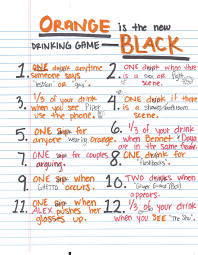 ORANGE is the new
DRINKING GAME BLACK
1. ONE drink anytime
someone says
"lesbian" or "gay".
2. ONE drink when there
is a sex or
scene.
3. 1/3 of your drink
when you see Piper
use the phone.
4. ONE drink if there
is a shower/bathroom
scene.
5. ONE sip for
anyone wearing orange.
6. 1/3 of your drink
when Bennet & Daya
are in the same room.
7. ONE sip for couples
arguing.
8. ONE drink for
"flashbacks".
9. ONE sip when
GHETTO occurs.
10. TWO drinks when
appears.
11. ONE sip when
ALEX pushes her
glasses up.
12. 1/3 of your drink
when you SEE "The Shu".